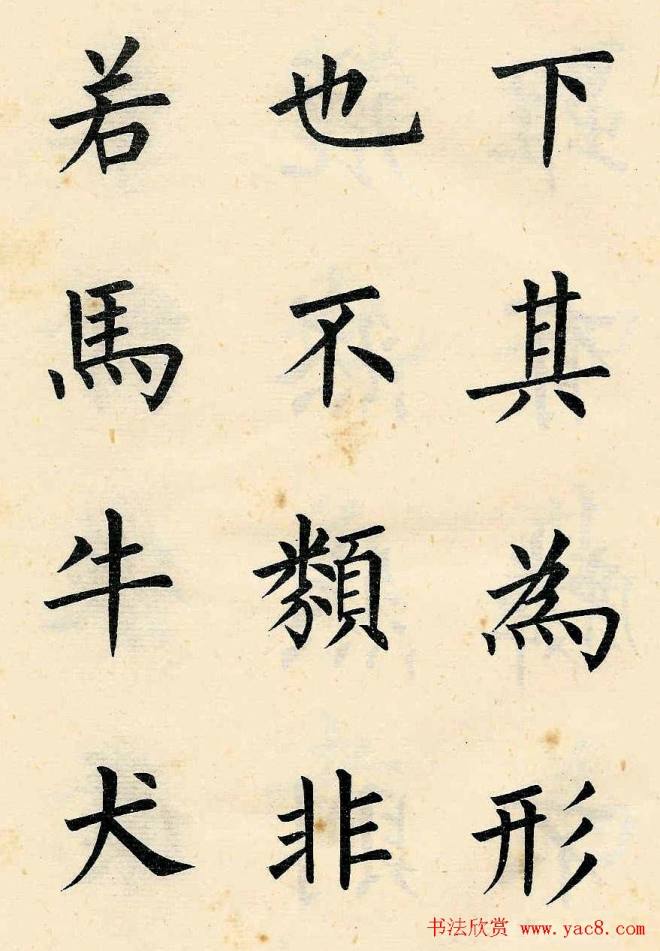 下其為形
也不類非
若馬牛犬
书法欣赏 www.yac8.com